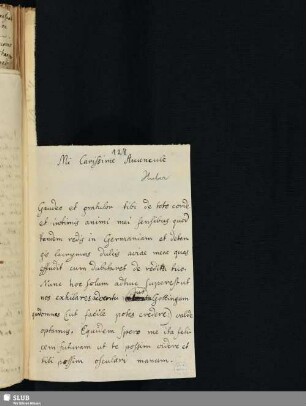 128
Mi Carissime Avuncule
Gaudeo et gratulor tibi de toto corde
et intimis animi mei sensibus quod
tandem redis in Germaniam et deter-
ge lacrymas dulcis aviae meae quas
effudit cum dubitaret de reditu tuo.
Nunc hoc solum adhuc superest ut
nos exhilares reditu tuo Gottingam
quod omnes (ut facile potes credere) valde
optamus. Equidem spero me ita felicem
futuram ut te possim videre et
tibi possim osculari manum.
SLUB